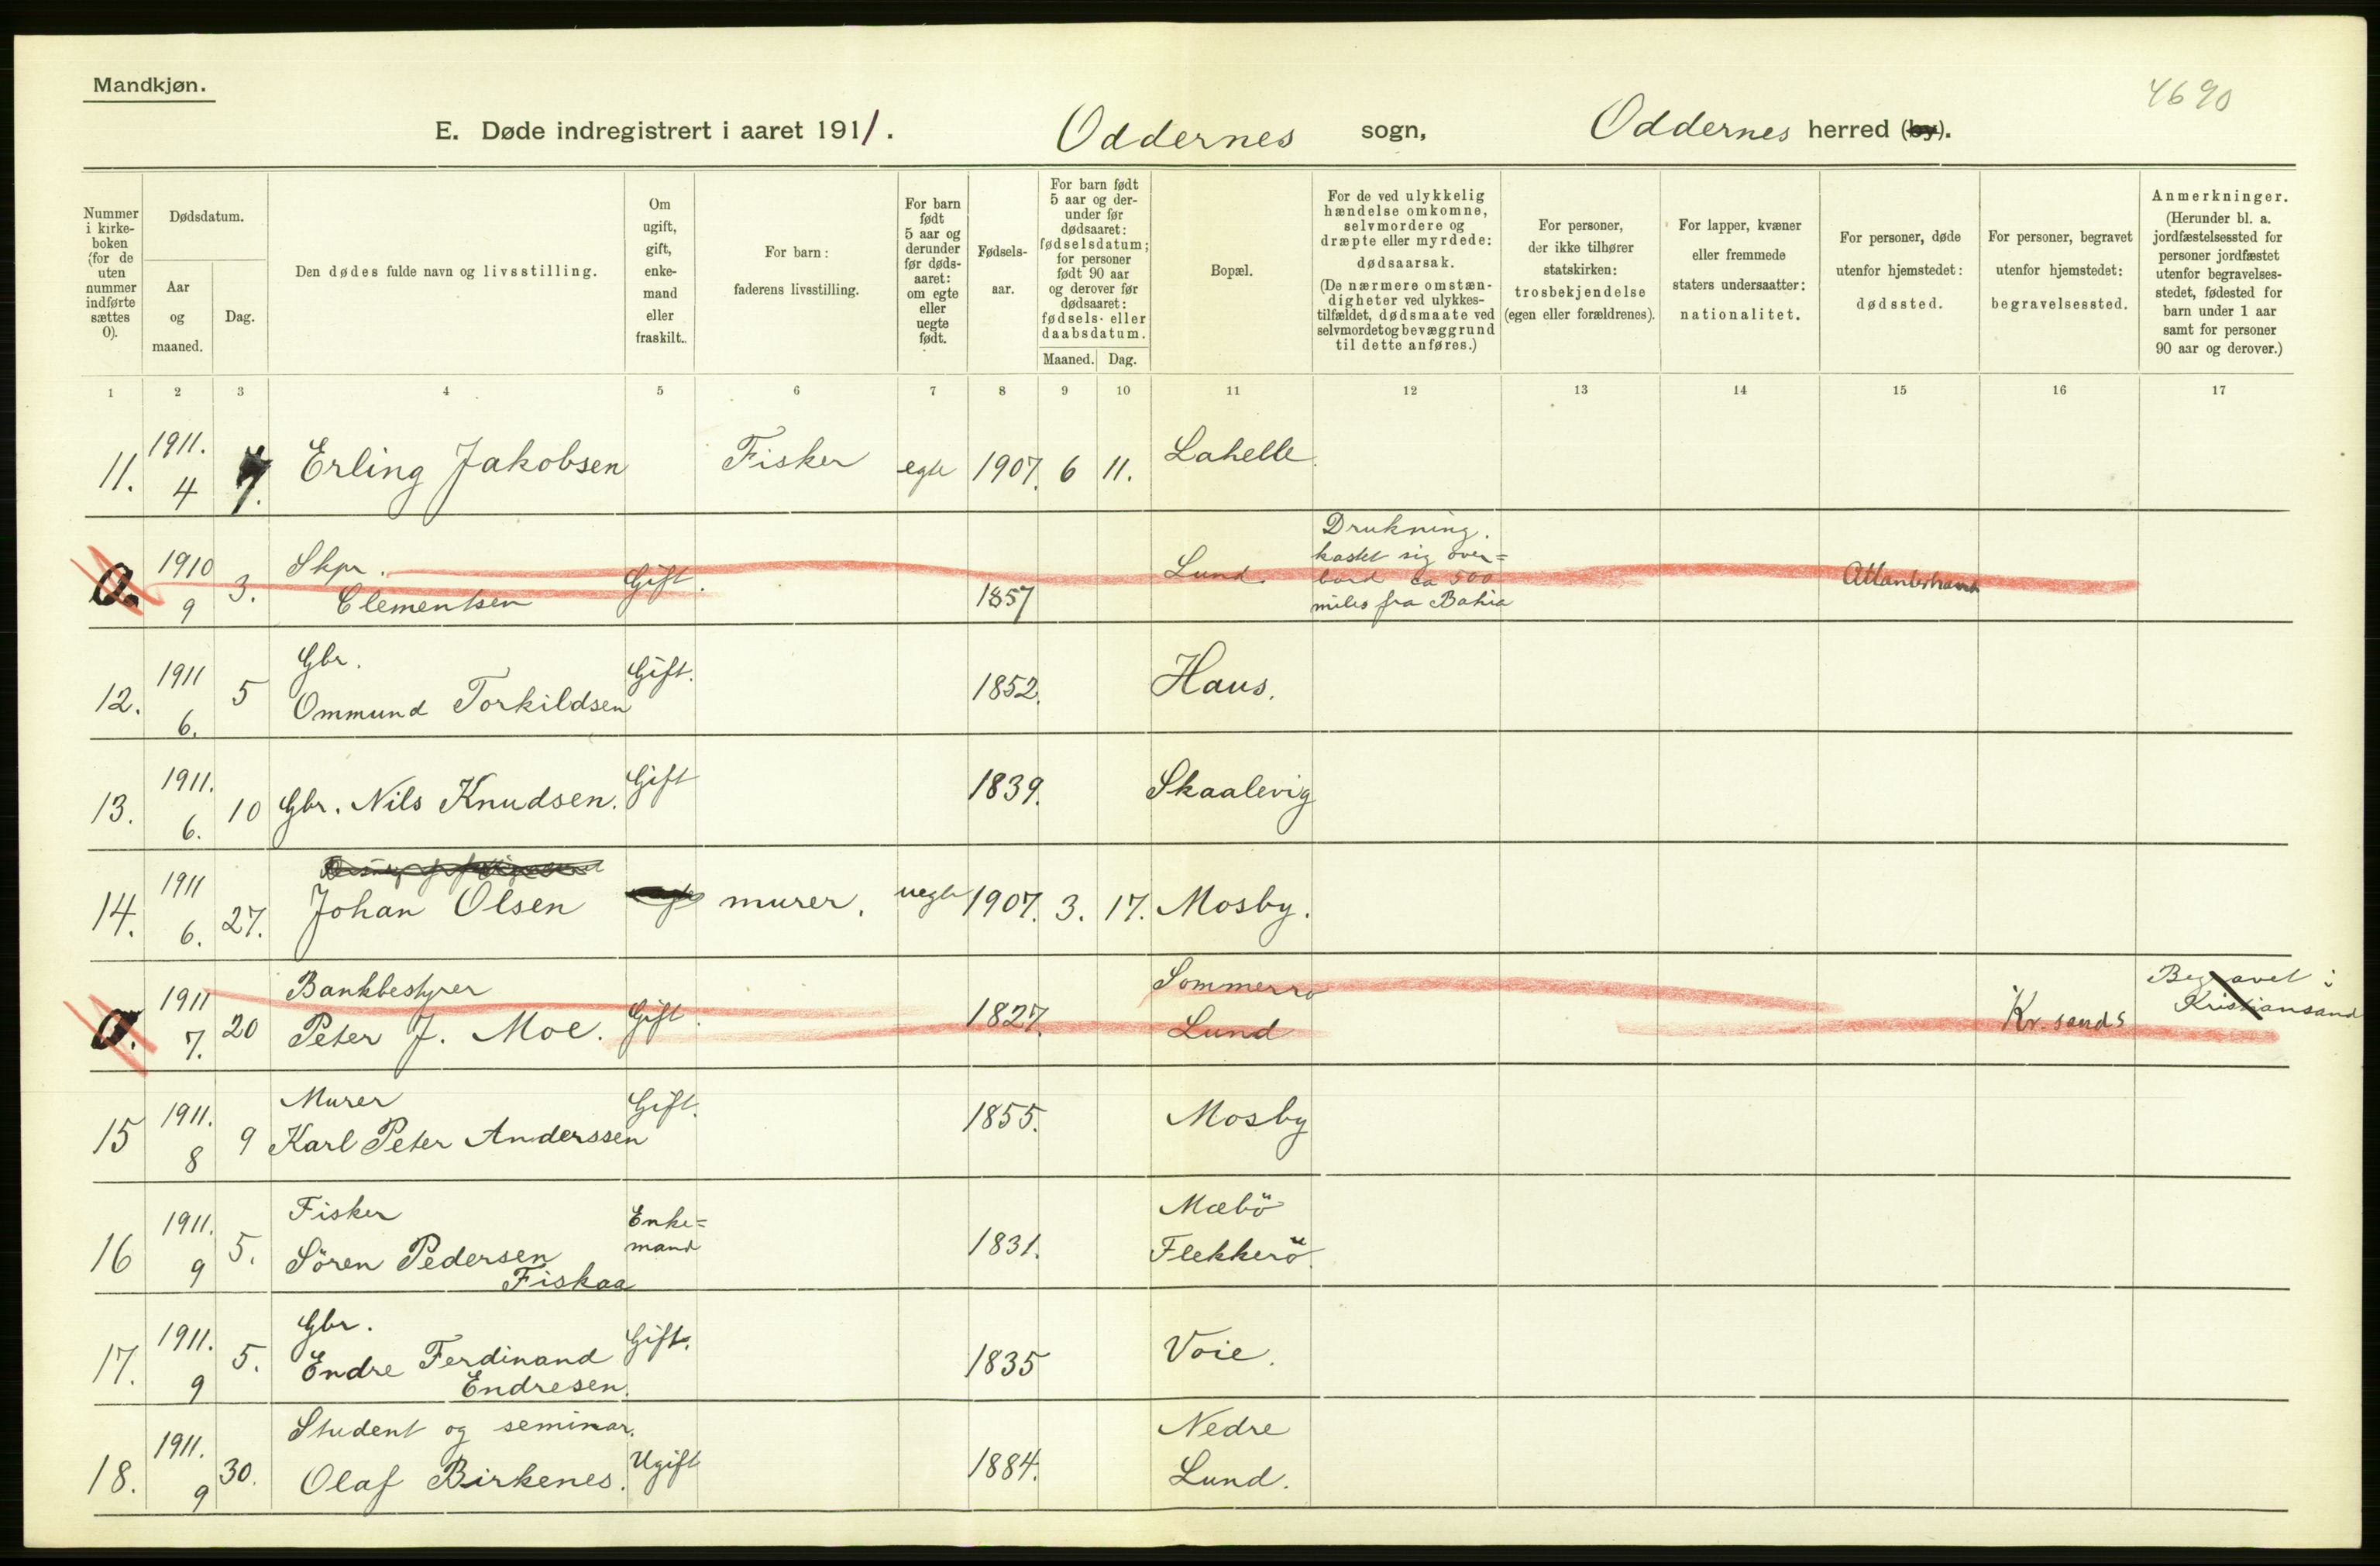 Mandkjøn.
4690
E. Døde indregistrert i aaret 1911. Oddernes sogn, Oddernes herred (by).
Nummer i kirke- boken (for de uten nummer indførte sættes 0).
Dødsdatum.
Aar og maaned.
Dag.
Den dødes fulde navn og livsstilling.
Om ugift, gift, enke- mand eller fraskilt.
For barn: faderens livsstilling.
For barn født 5 aar og derunder før døds- aaret: om egte eller uegte født.
Fødsels- aar.
For barn født 5 aar og der- under før dødsaaret: fødselsdatum; for personer født 90 aar og derover før dødsaaret: fødsels- eller daabsdatum.
Maaned. Dag.
Bopæl.
For de ved ulykkelig hændelse omkomne, selvmordere og dræpte eller myrdede: dødsaarsak. (De nærmere omstæn- digheter ved ulykkes- tilfældet, dødsmaate ved selvmordet og bevæggrund til dette anføres.)
For personer, der ikke tilhører statskirken: trosbekjendelse (egen eller forældrenes).
For lapper, kvæner eller fremmede staters undersaatter: nationalitet.
For personer, døde utenfor hjemstedet: dødssted.
For personer, begravet utenfor hjemstedet: begravelsessted.
Anmerkninger. (Herunder bl. a. jordfæstelsessted for personer jordfæstet utenfor begravelses- stedet, fødested for barn under 1 aar samt for personer 90 aar og derover.)
1 2 3 4 5 6 7 8 9 10 11 12 13 14 15 16 17
11. 1911. 4 7. Erling Jakobsen Fisker egte 1907. 6 11. Lahelle.
0. 1910 9 3. Skpr. Clementsen Gift. 1857 Lund. Drukning. kastet sig over= bord ca 500 miles fra Bahia Atlanterhavet
12. 1911 6. 5 Gbr. Ommund Torkildsen Gift. 1852. Haus.
13. 1911. 6. 10 Gbr. Nils Knudsen. Gift 1839. Skaalevig
14. 1911 6. 27. Johan Olsen murer. uegte 1907. 3. 17. Mosby.
0. 1911 7. 20 Bankbestyrer Peter J. Moe. Gift. 1827. Sommerro Lund Kr. sands Begravet i Kristiansand
15 1911. 8 9 Murer Karl Peter Anderssen Gift. 1855. Mosby
16 1911. 9 5. Fisker Sören Pedersen Fiskaa Enke= mand 1831. Mæbö Flekkerö.
17. 1911. 9 5. Gbr. Endre Ferdinand Endresen. Gift. 1835 Voie.
18. 1911. 9 30. Student og seminar. Olaf Birkenes. Ugift 1884. Nedre Lund.